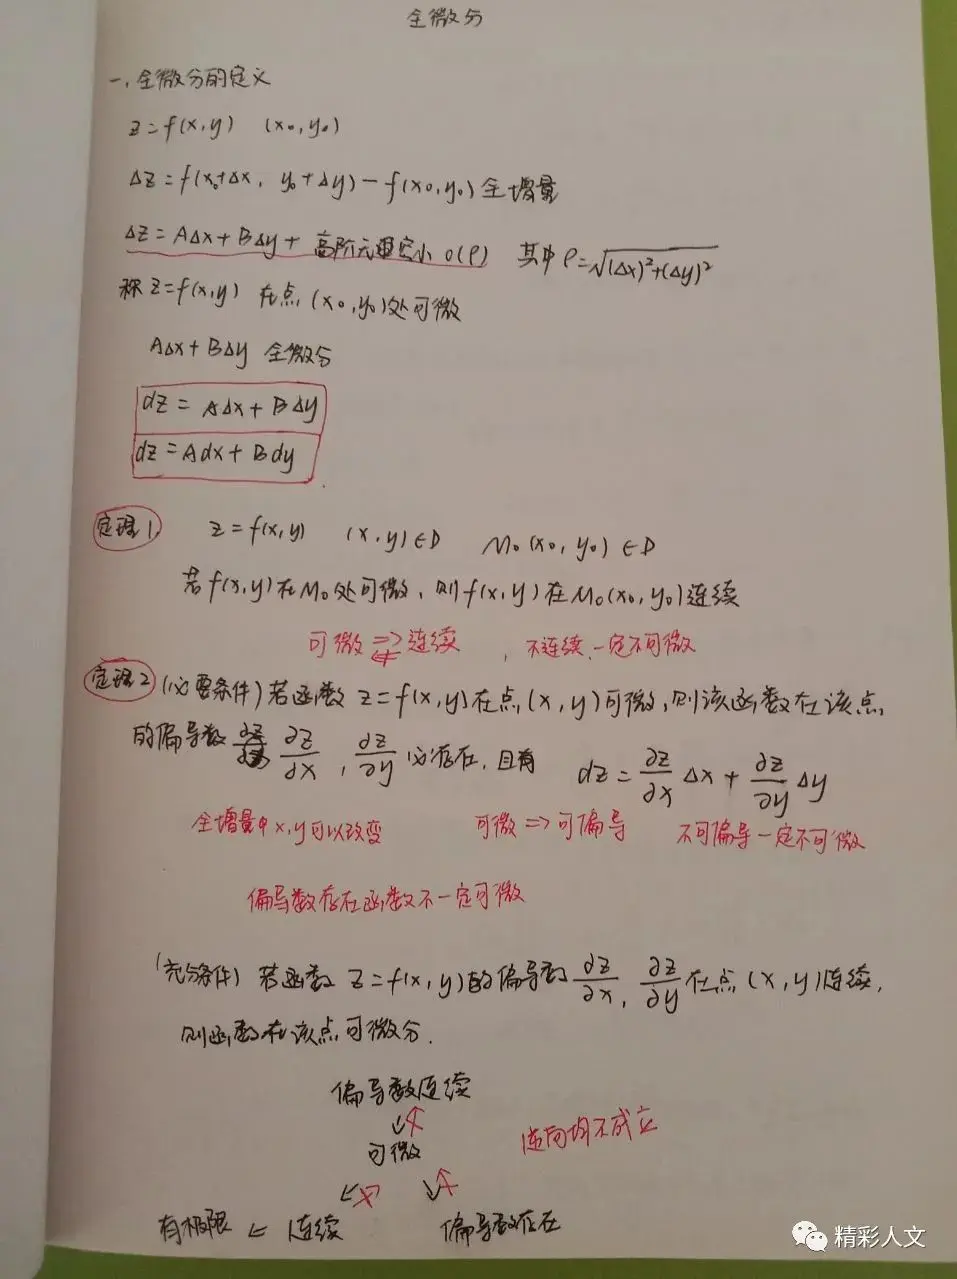 全微分
一、全微分的定义
z=f(x,y) (x₀,y₀)
Δz=f(x₀+Δx, y₀+Δy)-f(x₀,y₀)全增量
Δz=AΔx+BΔy+高阶无穷小 o(ρ) 其中ρ=√((Δx)²+(Δy)²)
称z=f(x,y) 在点(x₀,y₀)处可微
AΔx+BΔy 全微分
dz=AΔx+BΔy
dz=Adx+Bdy
定理1. z=f(x,y) (x,y)∈D M₀(x₀,y₀)∈D
若f(x,y)在M₀处可微,则f(x,y)在M₀(x₀,y₀)连续
可微⇒连续,不连续一定不可微
定理2 (必要条件)若函数z=f(x,y)在点(x,y)可微,则该函数在该点
的偏导数 ∂z/∂x, ∂z/∂y 必存在,且有 dz=∂z/∂x Δx+∂z/∂y Δy
全增量中x,y可以改变 可微⇒可偏导 不可偏导一定不可微
偏导数存在函数不一定可微
(充分条件) 若函数z=f(x,y)的偏导数∂z/∂x, ∂z/∂y在点(x,y)连续,
则函数在该点可微分.
偏导数连续
↓
可微 逆向均不成立
↙ ↓
有极限 ← 连续 偏导数存在
精彩人文